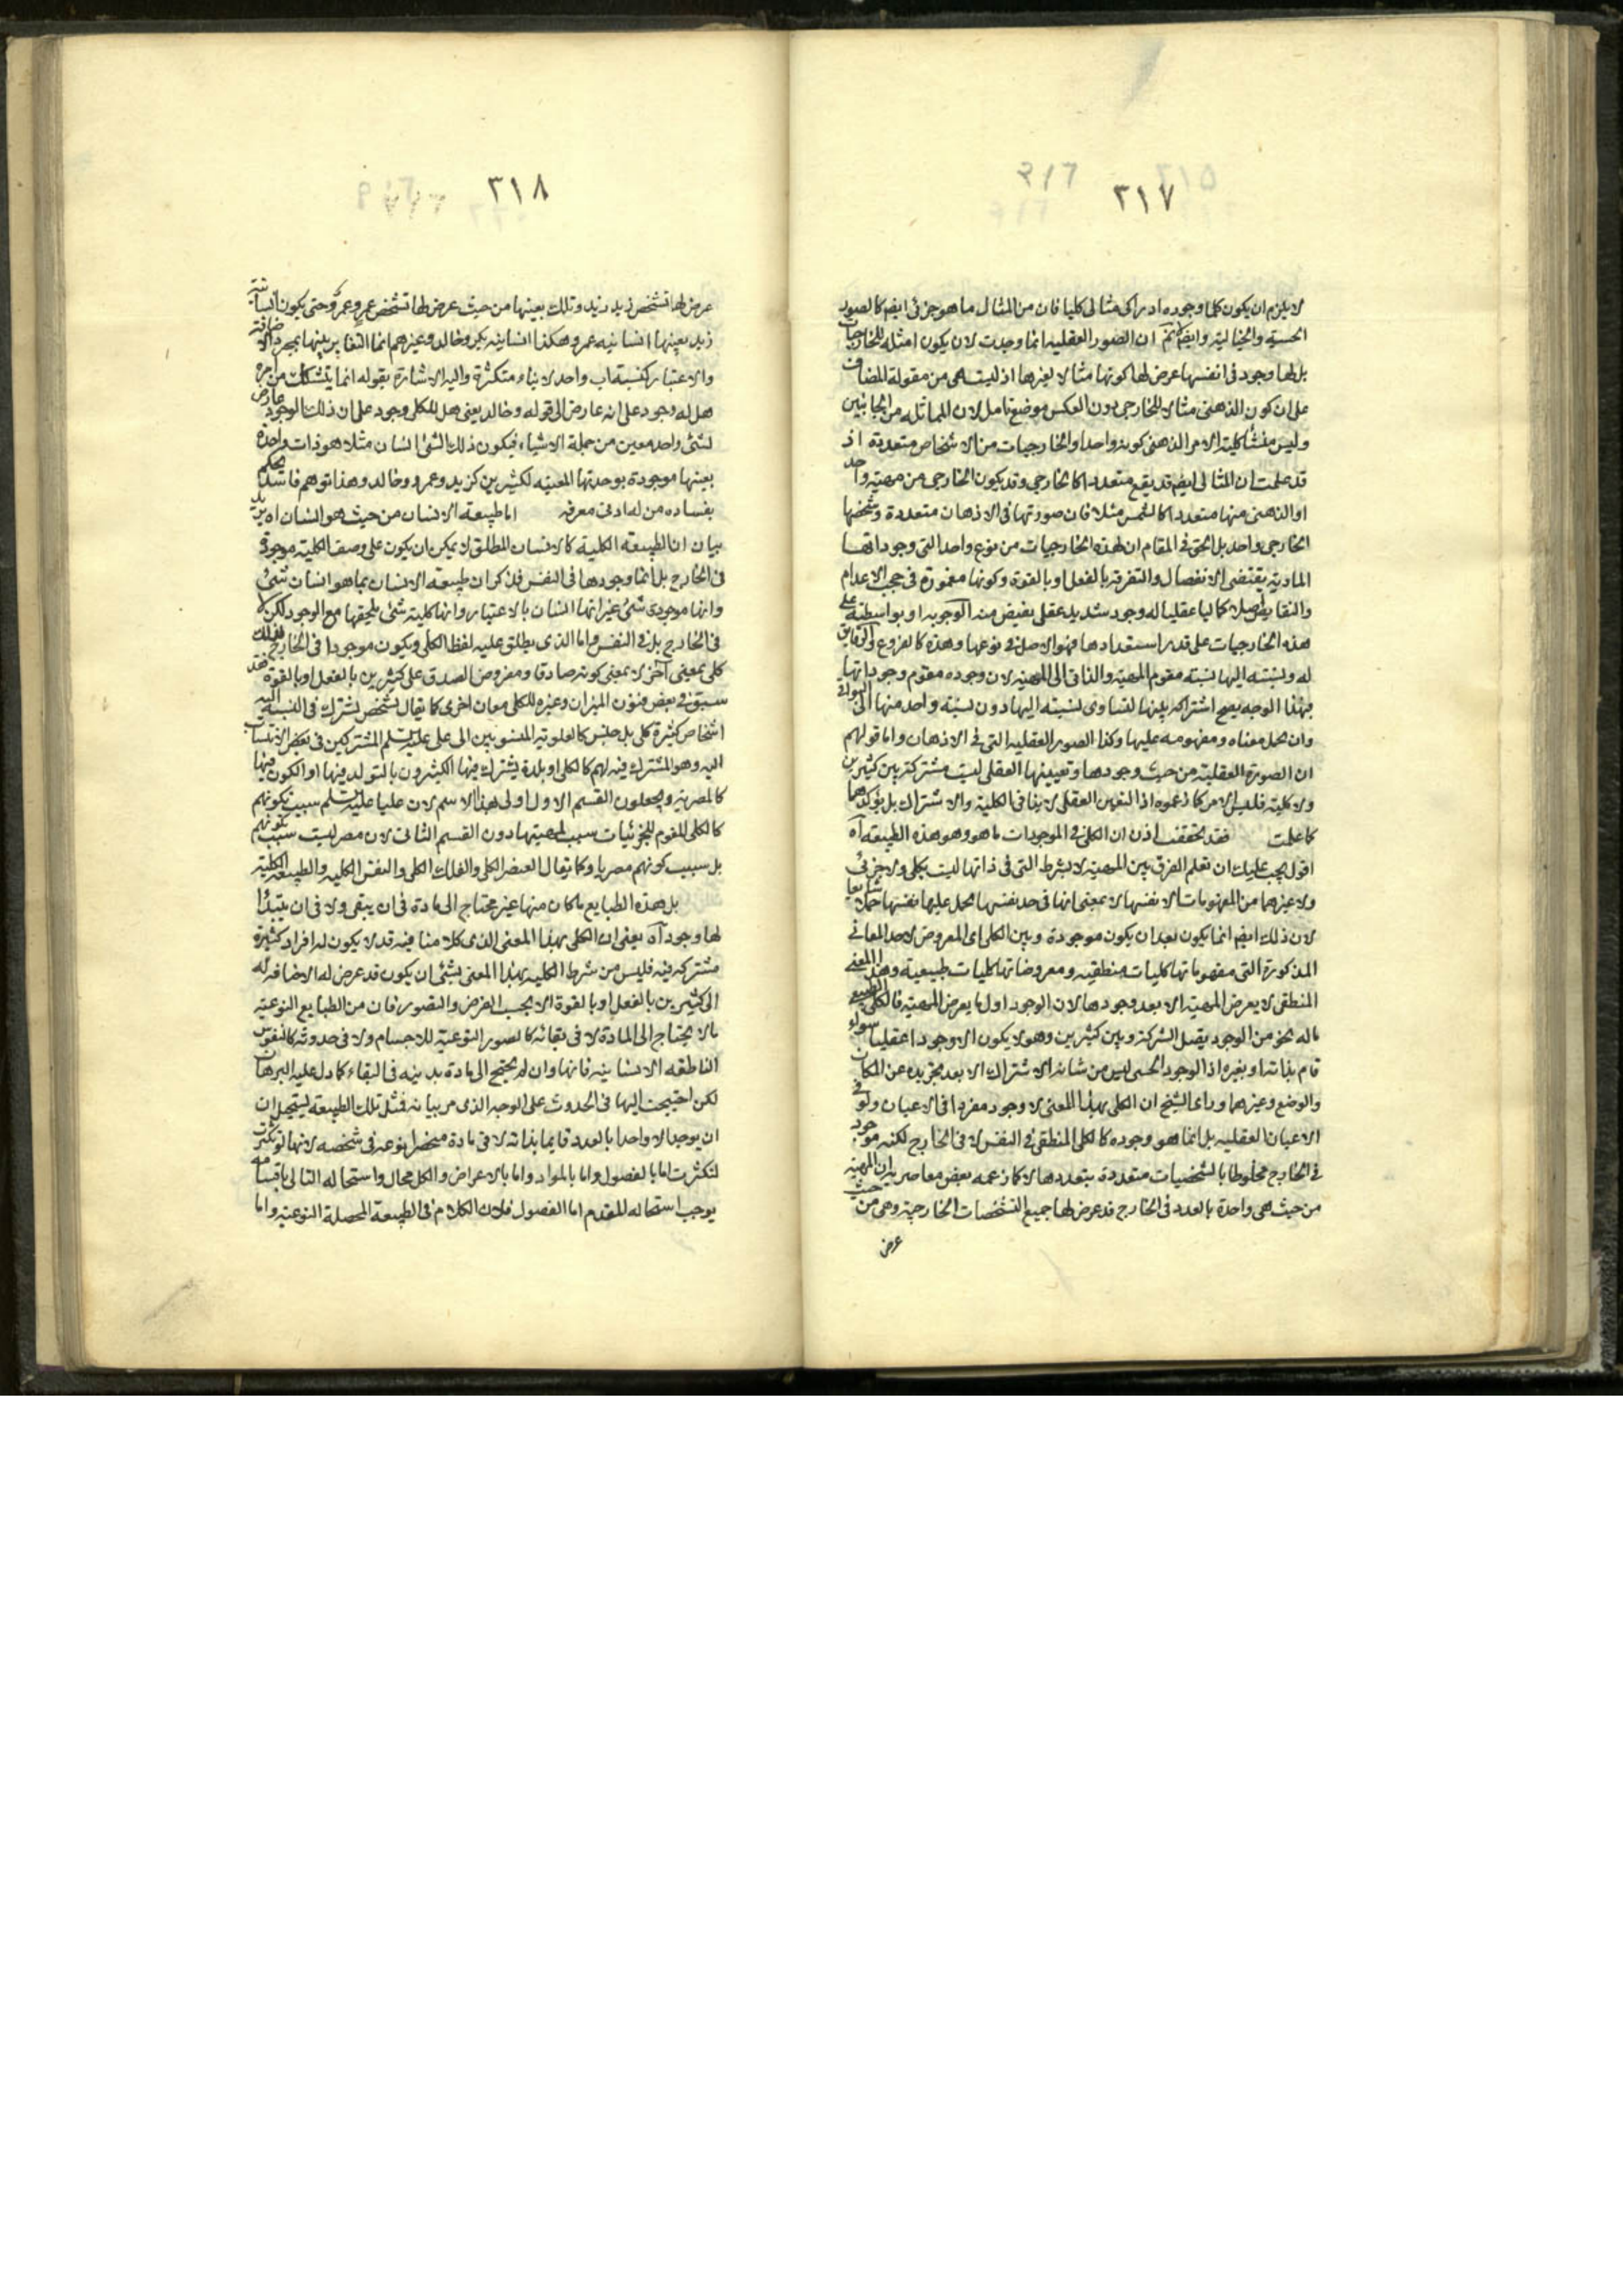 ٣١٧
لا يلزم ان يكون كلما وجوده ادراكى مثالى كليا فان من المثال ما هو جزئى ايضا كالصور
الحسية والخيالية وايضا ان الصور العقليه انما وجدت لان يكون امثله للخارجيات
بل لها وجود فى انفسها عرض لها كونها مثالا لغيرها اذ ليست هى من مقولة المضاف
على ان كون الذهنى مثالا للخارجى دون العكس موضع تامل لان المماثله من الجانبين
وليس منشأ كلية الامر الذهنى كونه واحدا والخارجيات من الاشخاص متعددة اذ
قد علمت ان المثالى ايضا قد يقع متعددا كالخارجى وقد يكون الخارجى من مهية واحد
او الذهنى منها متعددا كالشمس مثلا فان صورتها فى الاذهان متعددة وشخصها
الخارجى واحد بل الحق فى المقام ان لهذه الخارجيات من نوع واحد التى وجوداتها
المادية يقتضى الانفصال والتفرقة بالفعل او بالقوة وكونها مغمورة فى حجب الاعدام
والنقايص اصلا كماليا عقليا له وجود شديد عقلى يفيض منه الوجود او بواسطته على
هذه الخارجيات على قدر استعدادها فهو الاصل فى نوعها وهذه كالفروع والرقايق
له ونسبته اليها نسبته مقوم المهية والذاتى الى المهية لان وجوده مقوم وجوداتها
فبهذا الوجه يصح اشتراكه بينها لتساوى نسبته اليها دون نسبة واحد منها الى البواقى
وان يحمل معناه ومفهومه عليها وكذا الصور العقليه التى فى الاذهان واما قولهم
ان الصورة العقلية من حيث وجودها وتعيينها العقلى ليست مشتركة بين كثيرين
ولا كلية فليس الامر كما زعموه اذ التعين العقلى لا ينافى الكلية والاشتراك بل يؤكدهما
كما علمت فقد تحققت اذن ان الكلى فى الموجودات ما هو وهو هذه الطبيعه آه
اقول يجب عليك ان تعلم الفرق بين المهية لا بشرط التى فى ذاتها ليست بكلى ولا جزئى
ولا غيرهما من المفهومات الا نفسها لا بمعنى انها فى حد نفسها يحمل عليها نفسها حملا شايعا
لان ذلك ايضا انما يكون بعد ان يكون موجودة وبين الكلى اى المعروض لاحد المعانى
المذكورة التى مفهوماتها كليات منطقيه ومعروضاتها كليات طبيعية وهذا المعنى
المنطقى لا يعرض المهية الا بعد وجودها لان الوجود اول ما يعرض المهية فالكلى الطبيعى
ما له نحو من الوجود يقبل الشركة وبين كثيرين وهو لا يكون الا وجودا عقليا سواء
قام بذاته او بغيره اذ الوجود الحسى ليس من شانه الاشتراك الا بعد تجريده عن المكان
والوضع وغيرهما وراى الشيخ ان الكلى بهذا المعنى لا وجود مفردا فى الاعيان ولو فى
الاعيان العقليه بل انما هو وجوده كالكلى المنطقى فى النفس لا فى الخارج لكنه موجود
فى الخارج مخلوطا بالشخصيات متعددة بتعددها لا كما زعمه بعض معاصريه ان المهية
من حيث هى واحدة بالعدد فى الخارج قد عرض لها جميع التشخصات الخارجية وهى من حيث
عرض
٣١٨
عرض لها تشخص زيد زيد وتلك بعينها من حيث عرض لها تشخص عمرو عمرو حتى يكون انسانية
زيد بعينها انسانيه عمرو هكذا انسانيه بكر وخالد وغيرهم انما التغاير بينها بمجرد الاضافة
والاعتبار كنسبة اب واحد لابناء متكثرة واليه الاشارة بقوله انما يتشكك من امره
هل له وجود على انه عارض الى قوله وخالد يعنى هل للكلى وجود على ان ذلك الوجود عارض
لشئ واحد معين من جملة الاشياء فيكون ذلك الشئ انسان مثلا هو ذات واحدة
بعينها موجودة بوحدتها المعينه لكثيرين كزيد وعمرو وخالد وهذا توهم فاسد يحكم
بفساده من له ادنى معرفه اما طبيعه الانسان من حيث هو انسان اه يريد
بيان ان الطبيعه الكلية كالانسان المطلق لا يمكن ان يكون على وصف الكليه موجودة
فى الخارج بل انما وجودها فى النفس فذكر ان طبيعه الانسان بما هو انسان شئ
وانها موجودى شئ غير انها انسان بالاعتبار وانها كلية شئ يلحقها مع الوجود لكن لا
فى الخارج بل فى النفس واما الذى يطلق عليه لفظ الكلى ويكون موجودا فى الخارج فذلك
كلى بمعنى آخر لا بمعنى كونه صادقا ومفروض الصدق على كثيرين بالفعل او بالقوة فقد
سبق فى بعض فنون الميزان وغيره للكلى معان اخرى كما يقال لشخص يشترك فى النسبة اليه
اشخاص كثيرة كلى بل جنس كالعلوية المنسوبين الى على عليه السلم المشتركين فى بعض الانتساب
اليه وهو المشترك فيه لهم كالكلى او بلدة يشترك فيها الكثيرون بالتولد فيها او الكون فيها
كالمصرية ويجعلون القسم الاول اولى بهذا الاسم لان عليا عليه السلم سبب لكونهم
كالكلى المقوم للجزئيات سبب لمهيتها دون القسم الثانى لان مصر ليست سبب لكونهم
بل سبب كونهم مصريا وكما يقال العنصر الكلى والفلك الكلى والنفس الكليه والطبيعه الكلية
بل هذه الطبايع ما كان منها غير محتاج الى مادة فى ان يبقى ولا فى ان يبتدأ
لها وجود آه يعنى ان الكلى بهذا المعنى الذى كلامنا فيه قد لا يكون له افراد كثيرة
مشتركه فيه فليس من شرط الكليه بهذا المعنى بشئ ان يكون قد عرض له الاضافه له
الى كثيرين بالفعل او بالقوة الا بحسب الفرض والتصور فان من الطبايع النوعية
ما لا يحتاج الى المادة لا فى بقائه كالصور النوعية للاجسام ولا فى حدوثه كالنفوس
الناطقه الانسانيه فانها وان لم يحتج الى مادة بدنيه فى البقاء كما دل عليه البرهان
لكن احتيجت اليها فى الحدوث على الوجه الذى مر بيانه فمثل تلك الطبيعه يستحيل ان
ان يوجد الا واحدا بالعدد قايما بذاته لا فى مادة منحصرا نوعه فى شخصه لانها لو تكثرت
لتكثرت اما بالفصول واما بالمواد واما بالاعراض والكل محال واستحاله التالى باقسامه
يوجب استحاله المقدم اما الفصول فلان الكلام فى الطبيعة المحصلة النوعية واما